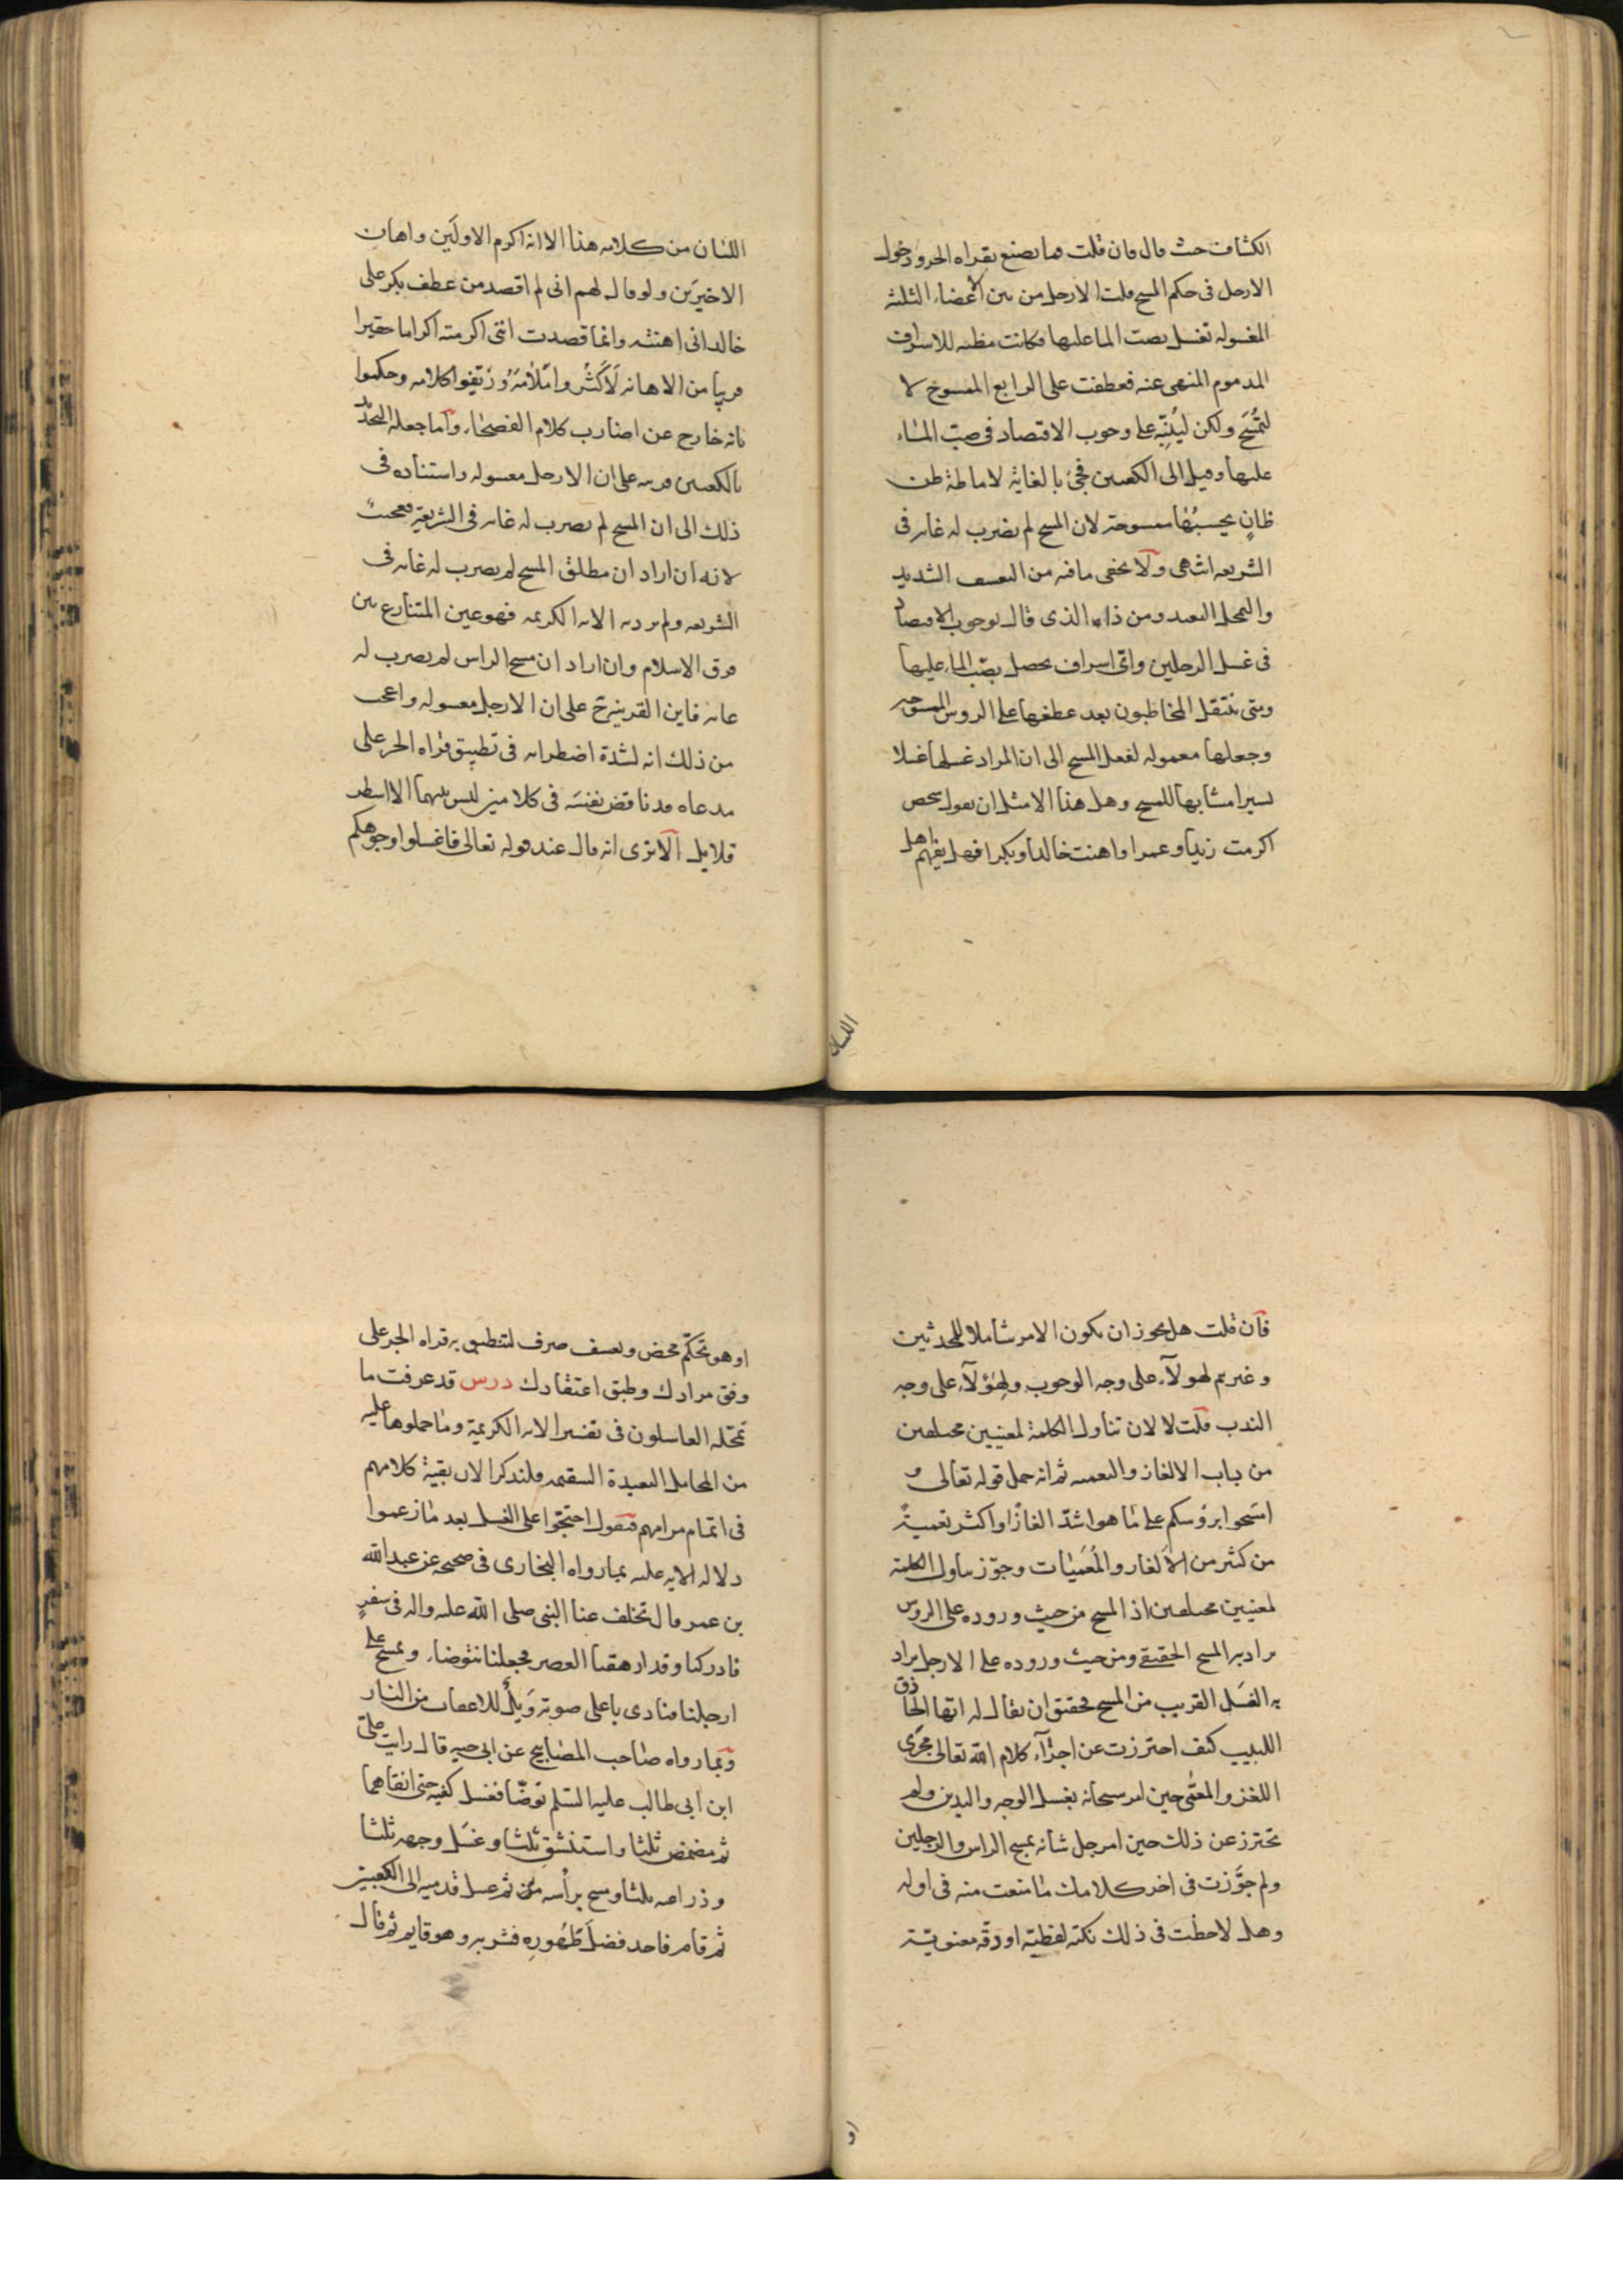 الكشاف حيث قال فان قلت فما يصنع بقراه الجر ودخول
الارجل فى حكم المسح قلت الارجل من بين الاعضاء الثلثة
المغسوله تغسل بصب الما عليها فكانت مظنه للاسراف
المذموم المنهى عنه فعطفت على الرابع الممسوح لا
لتُمْسَح ولكن ليُنَبِّه على وجوب الاقتصاد فى صب الماء
عليها وقيل الى الكعبين فجئ بالغاية لاماطة ظن
ظانٍ يحسبُها ممسوحة لان المسح لم يضرب له غايه فى
الشريعه انتهى ولا يخفى ما فيه من التعسف الشديد
والتمحل البعيد ومن ذا الذى قال بوجوب الاقتصاد
فى غسل الرجلين واى اسراف يحصل بصب الماء عليها
ومتى ينتقل المخاطبون بعد عطفها على الروس الممسوحه
وجعلها معموله لفعل المسح الى ان المراد غسلها غسلا
يسيرا مشابها للمسح وهل هذا الا مثل ان يقول شخص
اكرمت زيدا وعمرا واهنت خالدا وبكرا فهل يفهم اهل
اللسان
اللسان من كلامه هذا الا انه اكرم الاولَين واهان
الاخيرَين ولو قال لهم انى لم اقصد من عطف بكر على
خالد انى اهنته وانما قصدت اننى اكرمته اكراما حقيرا
قريبا من الاهانه لَاَكثُروا مَلامَهُ وزَيّفوا كلامه وحكموا
بانه خارج عن اضارب كلام الفصحاء واما جعله التحديد
بالكعبين قرينه على ان الارجل مغسوله واستناده فى
ذلك الى ان المسح لم يضرب له غايه فى الشريعة فعجيب
لانه ان اراد ان مطلق المسح لم يضرب له غايه فى
الشريعه ولم يرد به الايه الكريمه فهو عين المتنازع بين
فرق الاسلام وان اراد ان مسح الراس لم يضرب له
غايه فاين القرينة ح على ان الارجل مغسوله واعجب
من ذلك انه لشدة اضطرابه فى تطبيق قراه الجر على
مدعاه قد ناقض نفسَه فى كلامين ليس بينهما الا اسطر
قلايل الا ترى انه قال عند قوله تعالى فاغسلوا وجوهكم
فان قلت هل يجوز ان يكون الامر شاملا للمحدثين
وغيرهم لهولاء على وجه الوجوب ولهؤلاء على وجه
الندب قلت لا لان تناول الكلمة لمعنيين مختلفين
من باب الالغاز والتعميه ثم انه حمل قوله تعالى و
امسحوا برؤسكم على ما هو اشدّ الغازًا واكثر تعميةً
من كثير من الالغاز والمُعَمّيات وجوّز تناول الكلمة
لمعنيين مختلفين اذ المسح من حيث وروده على الروس
يراد به المسح الحقيقى ومن حيث وروده على الارجل يراد
به الغَسل القريب من المسح فحقيق ان يقال له ايها الحاذق
اللبيب كيف احترزت عن اجراء كلام الله تعالى مجرى
اللغز والمعمّى حين امر سبحانه بغسل الوجه واليدين ولم
تحترز عن ذلك حين امر جل شانه بمسح الراس والرجلين
ولم جوَّزت فى اخر كلامك ما منعت منه فى اوله
وهل لاحظت فى ذلك نكته لفظيّه او دقّه معنويّه
او
او هو تحكّم محض وتعسف صرف لتنطبق به قراه الجر على
وفق مرادك وطبق اعتقادك درس قد عرفت ما
تمحّله الغاسلون فى تفسير الايه الكريمة وما حملوها عليه
من المحامل البعيدة السقيمه فلنذكر الان بقية كلامهم
فى اتمام مرامهم فنقول احتجّوا على الغسل بعد ما زعموا
دلاله الايه عليه بما رواه البخارى فى صحيحه عن عبد الله
بن عمر قال تخلف عنا النبى صلى الله عليه واله فى سفرٍ
فادركنا وقد ارهقنا العصر فجعلنا نتوضاء ونمسح على
ارجلنا فنادى باعلى صوته وَيلٌ للاعقاب من النار
وبما رواه صاحب المصابيح عن ابى حيه قال رايت على
ابن ابى طالب عليه السّلم توضّا فغسل كفيه حتى انقاهما
ثم مضمض ثلثا واستنشق ثلثا وغسَل وجهه ثلثا
وذراعيه ثلثا ومسح براْسه مرة ثم غسل قدميه الى الكعبين
ثم قام فاخذ فضلَ طَهُوره فشربه وهو قايم ثم قال